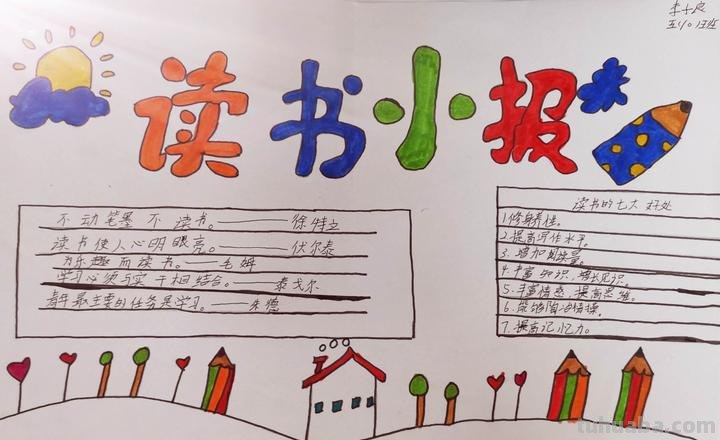 读书小报
不动笔墨不读书。——徐特立
读书使人心明眼亮。——伏尔泰
为乐趣而读书。——毛姆
学习必须与实干相结合。——泰戈尔
青年最主要的任务是学习。——朱德
读书的七大好处
1.修身养性。
2.提高写作水平。
3.增加阅读量。
4.丰富知识,增长见识。
5.丰富情感,提高思维。
6.能够陶冶情操。
7.提高记忆力。
tuhuaba.com